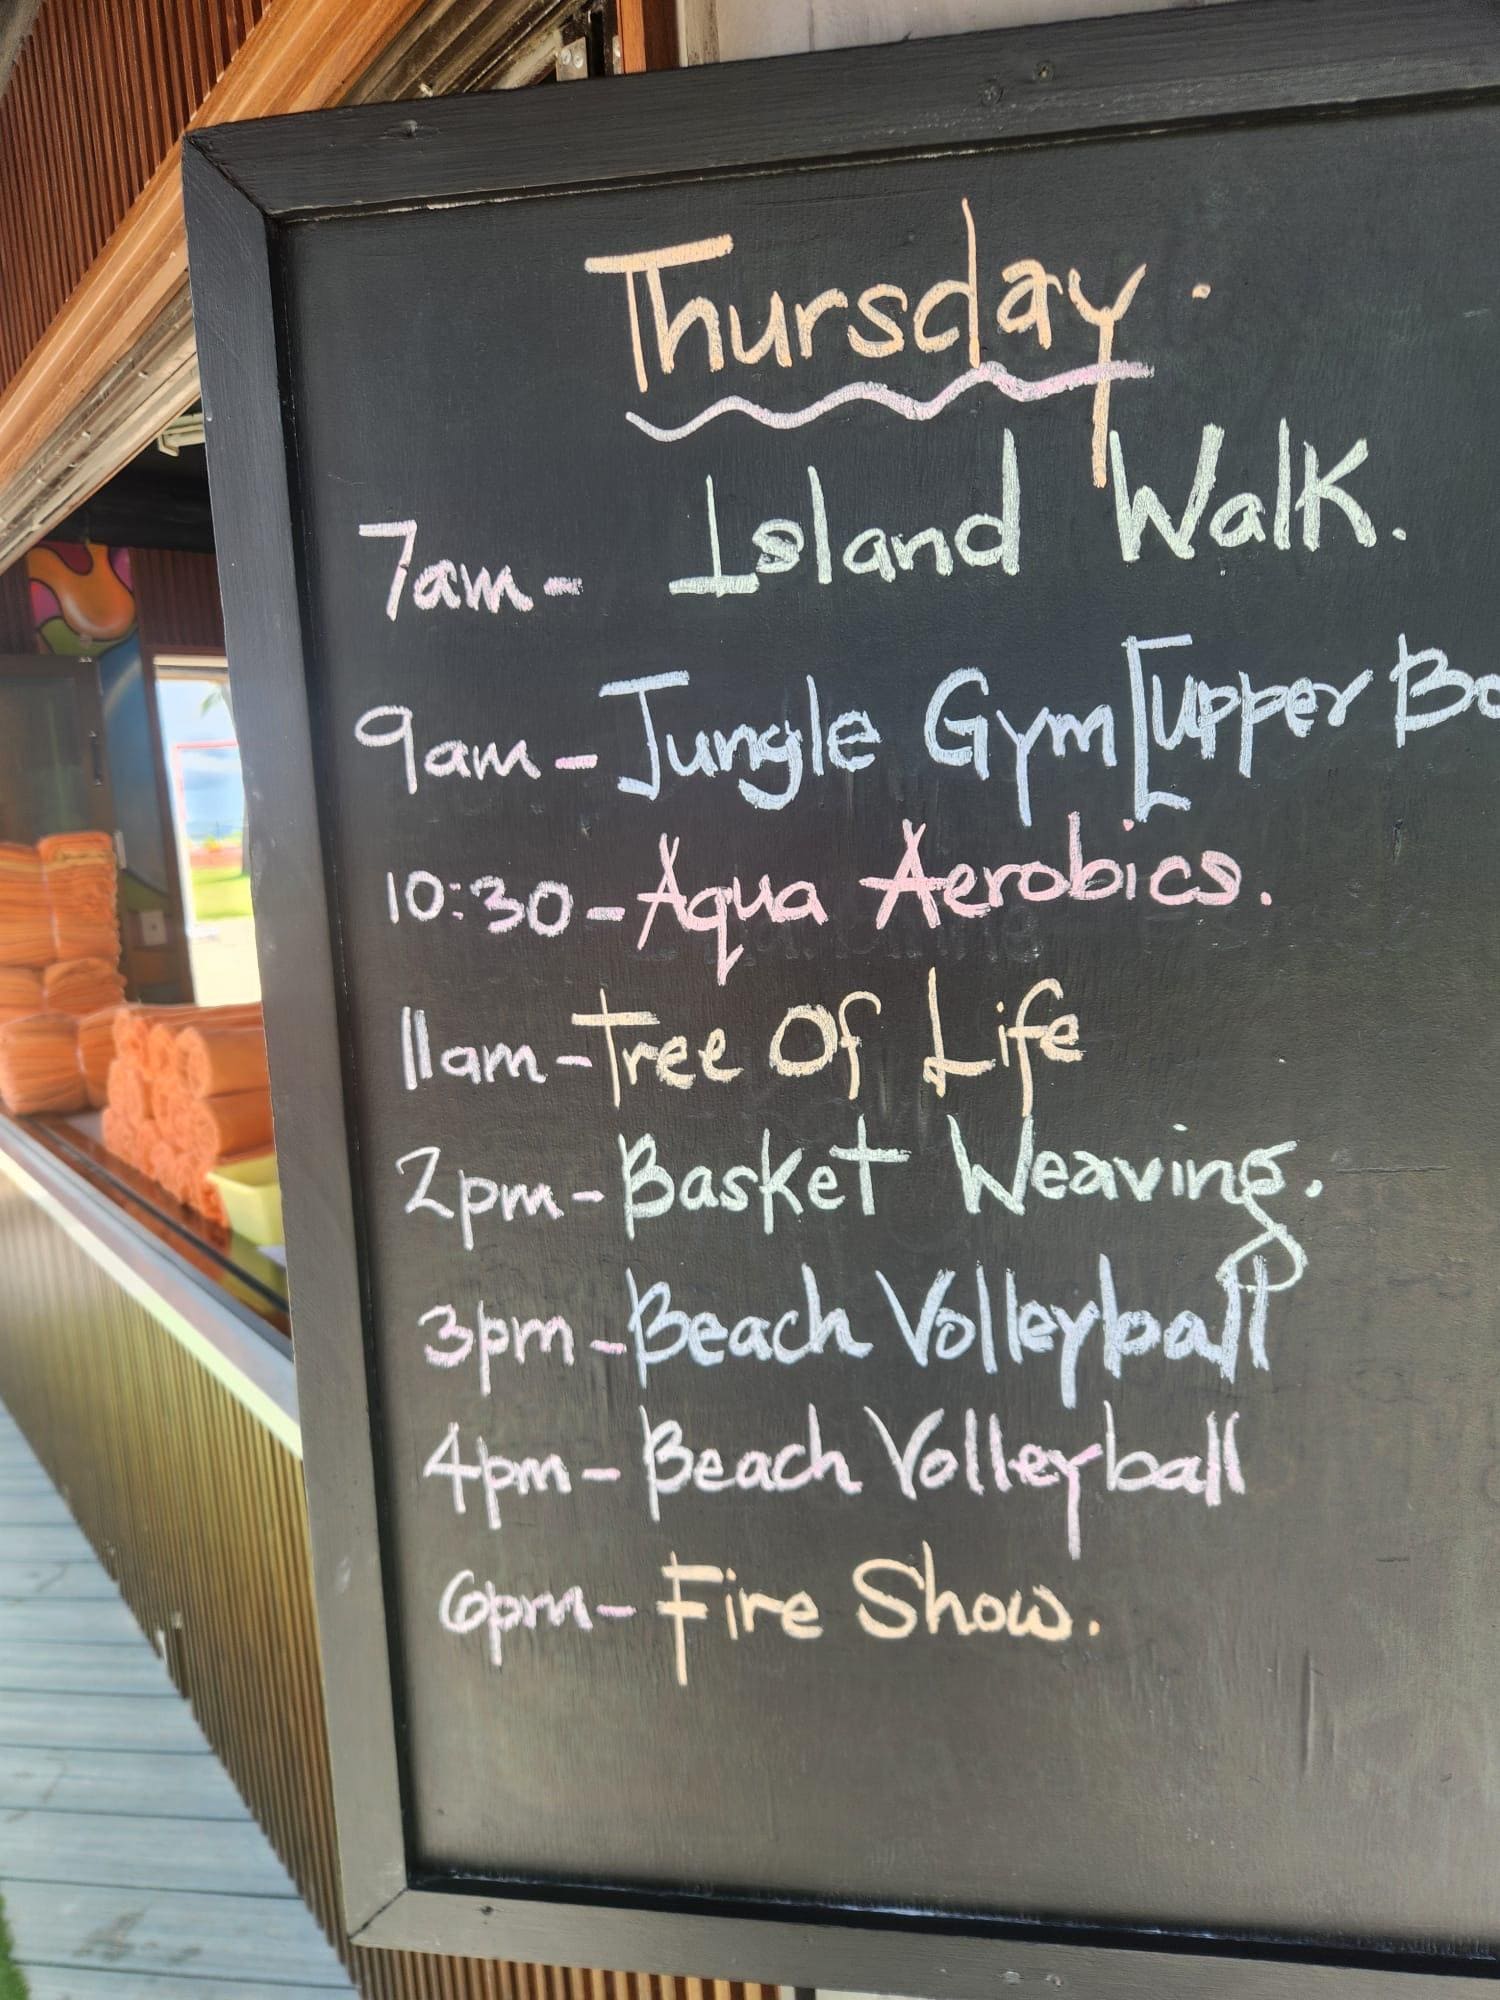 Thursday.
7am- Island Walk.
9am- Jungle Gym [Upper
10:30- Aqua Aerobics.
11am- Tree Of Life
2pm- Basket Weaving.
3pm- Beach Volleyball
4pm- Beach Volleyball
6pm- Fire Show.